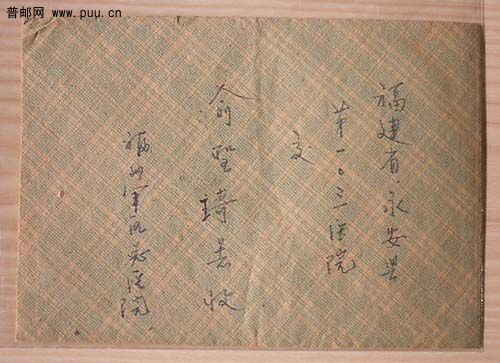 普邮网 www.puu.cn
福建省永安县
第一〇三医院
交
俞琦君收
福州军区总医院